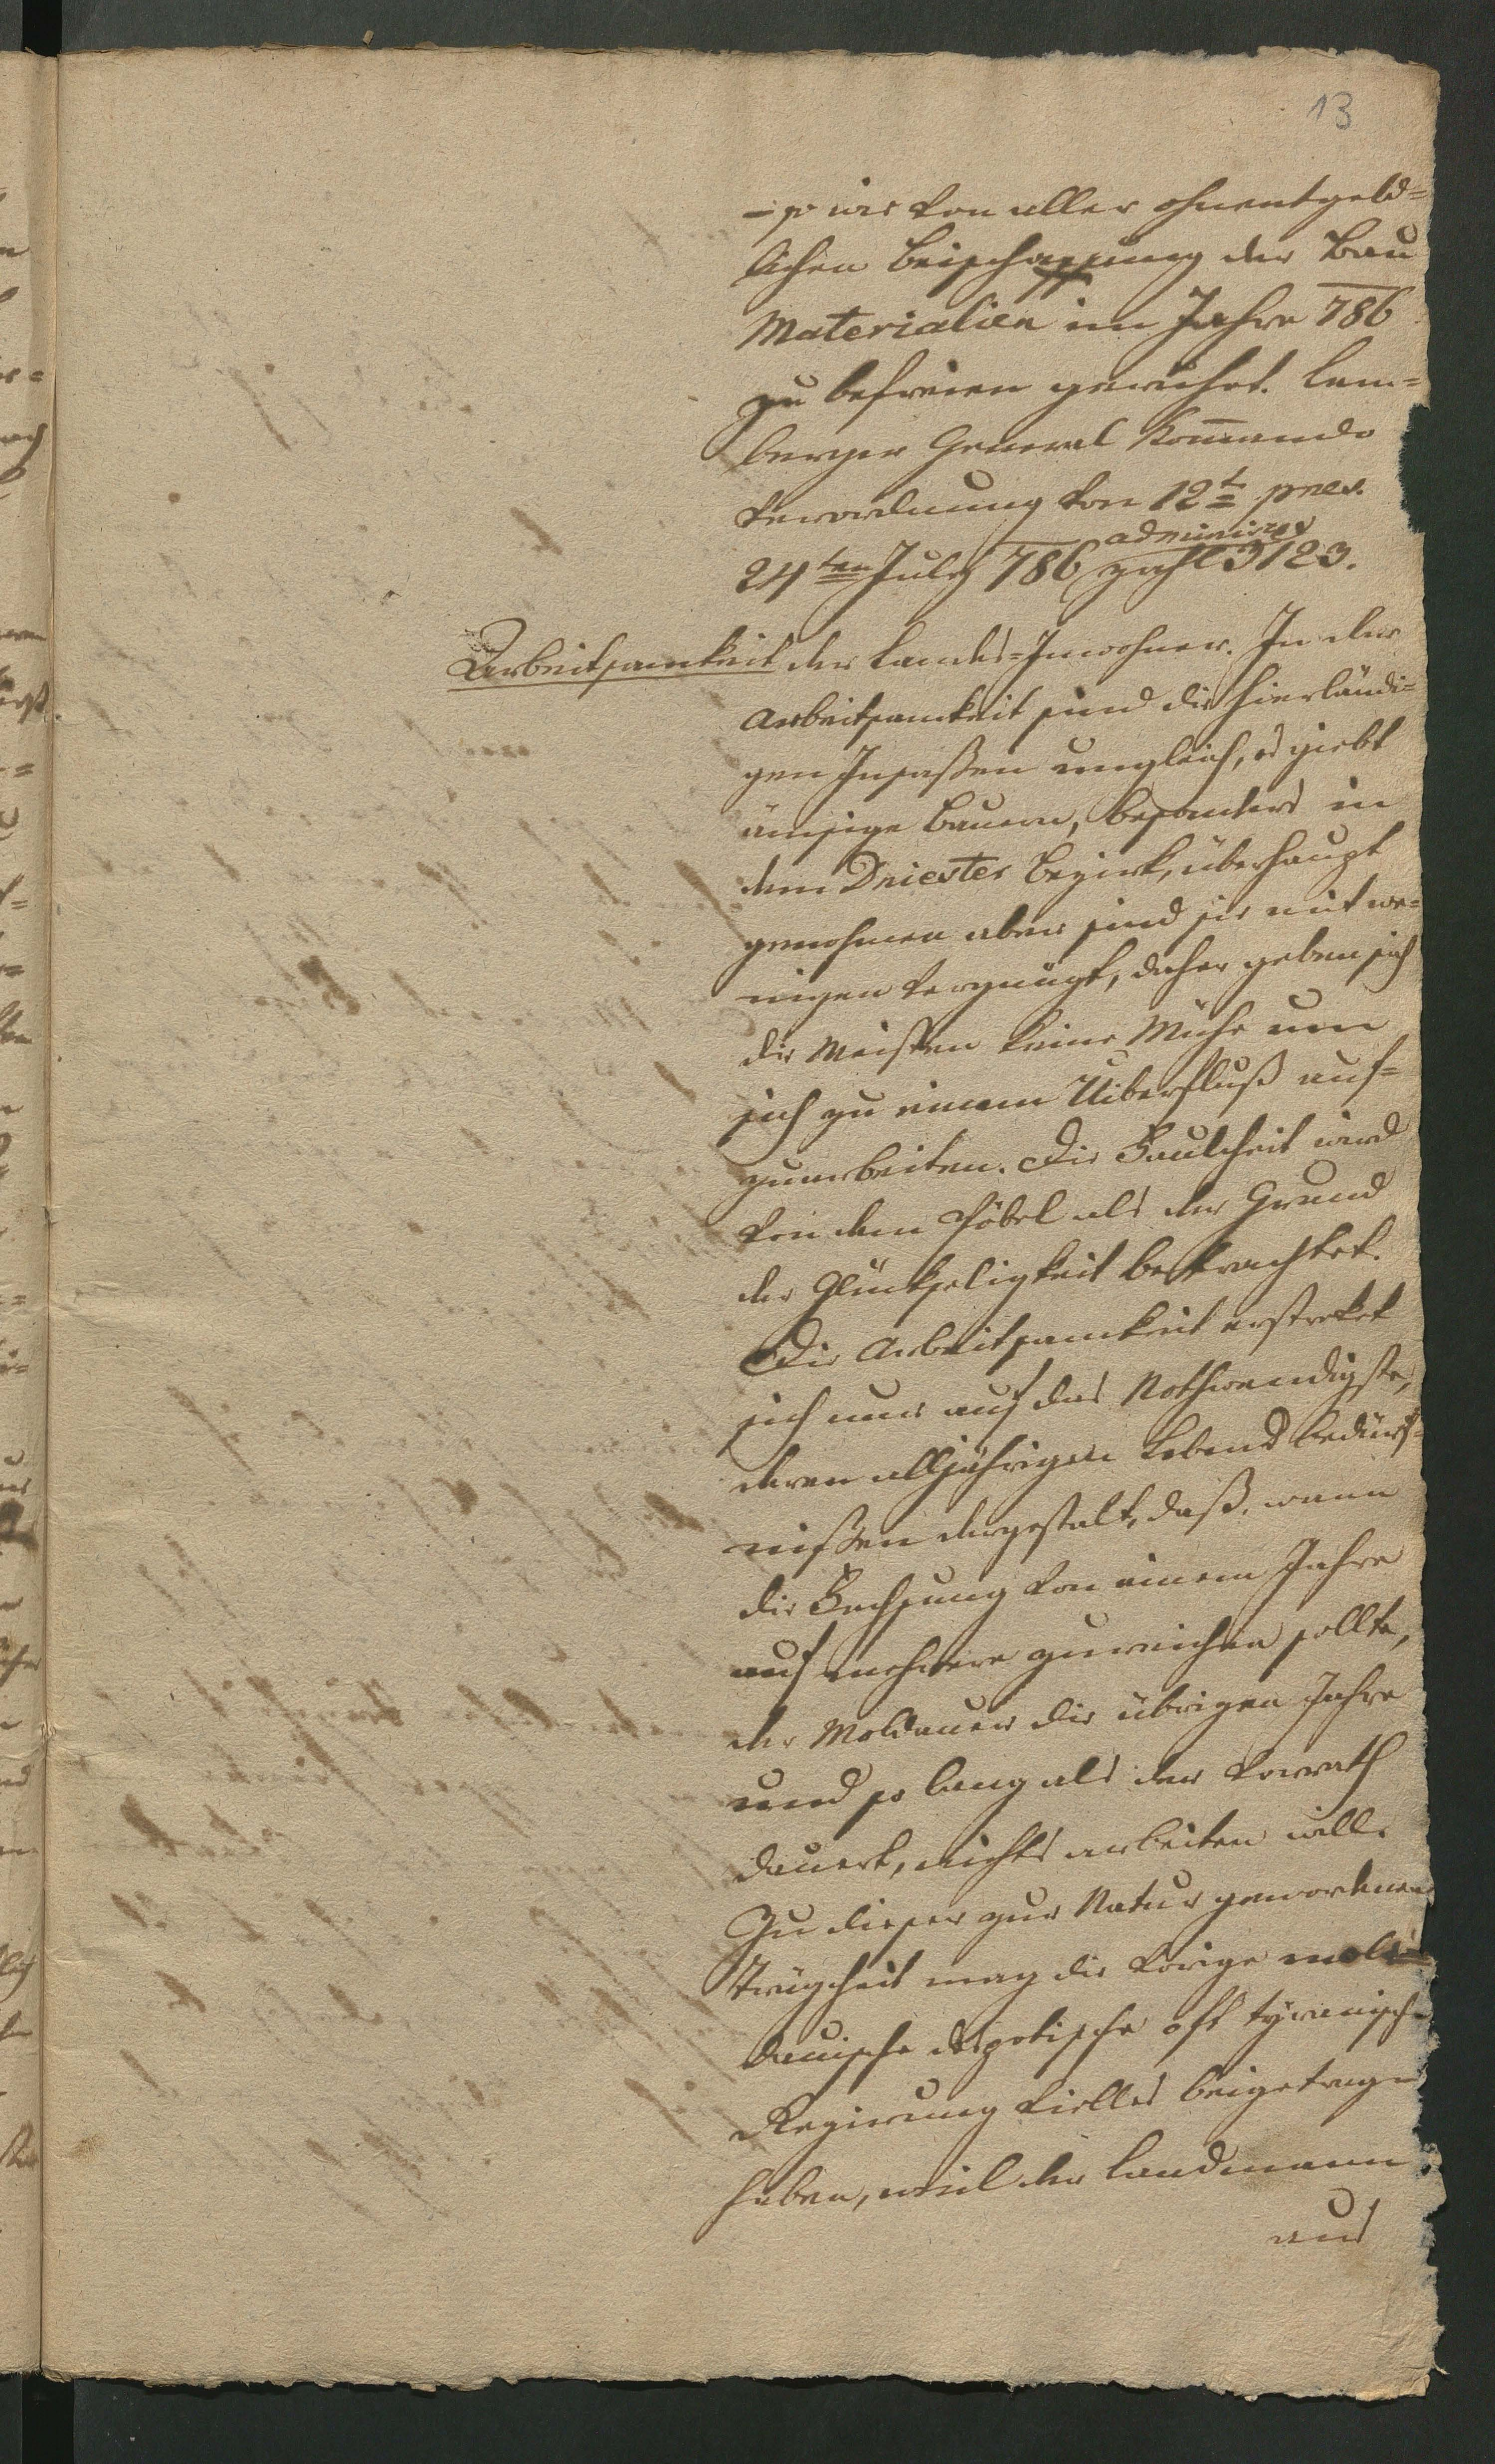 13
– so wie von aller ohnentgeld=
lichen Beischaffung der Bau
Materialien im Jahre 786
zu befreien geruhet. Lem=
berger General Kom̅ando
Verordnung von 12t praes.
24ten July 786 administ
zahl 3123.
Arbeitsamkeit der Landes=Inwohner. In der
Arbeitsamkeit sind die hierländi=
gen Insaßen ungleich, es giebt
ämsige Bauern, besonders in
dem Dniester Bezirk, überhaupt
genohmen aber sind sie mit we=
nigen vergnügt, daher geben sich
die Meisten keine Mühe um
sich zu einem Uiberfluß auf=
zuarbeiten. Die Faulheit wird
von dem Pöbel als der Grund
der Glückseligkeit betrachtet.
Die Arbeitsamkeit erstreket
sich nur auf das Nothwendigste,
deren alljährigen Lebens bedürf=
nißen dergestalt, daß, wann
die Fechsung von einem Jahre
auf mehrere zureichen sollte,
der Moldauer die übrigen Jahre
und so lang als der Vorrath
dauert, nichts arbeiten will.
Zu dieser zur Natur gewordenen
Trägheit mag die vorige mol=
dauische despotische oft tyranische
Regierung vielles beigetragen
haben, weil der Landmann
aus